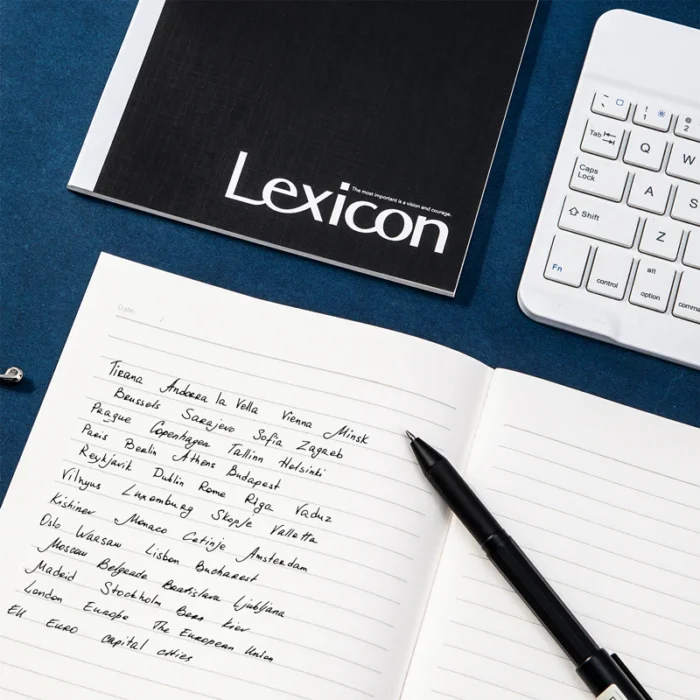 Lexicon
The most important is a vision and courage.
~ `
! 1
@ 2
Tab
Q
W
Caps Lock
A
S
Shift
Z
Fn
control
alt option
Date: /
Tirana Andorra la Vella Vienna Minsk
Brussets Sarajevo Sofia Zagreb
Prague Copenhagen Tallinn Helsinki
Paris Berlin Athens Budapest
Reykjavik Dublin Rome Riga Vaduz
Vilnyus Luxemburg Skopje Valletta
Kishinev Monaco Cetinje Amsterdam
Oslo Warsaw Lisbon Bucharest
Moscow Belgrade Bratislava Ljubljana
Madrid Stockholm Bern Kiev
London Europe The European Union
EU Euro capital cities